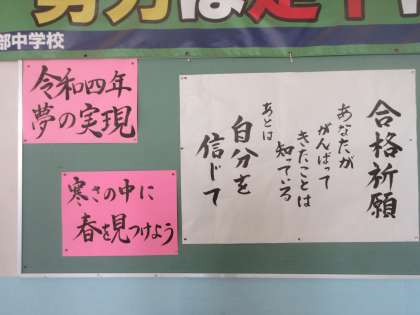 努力は
部中学校
令和四年
夢の実現
寒さの中に
春を見つけよう
合格祈願
あなたが
がんばって
きたことは
知っている
あとは
自分を
信じて